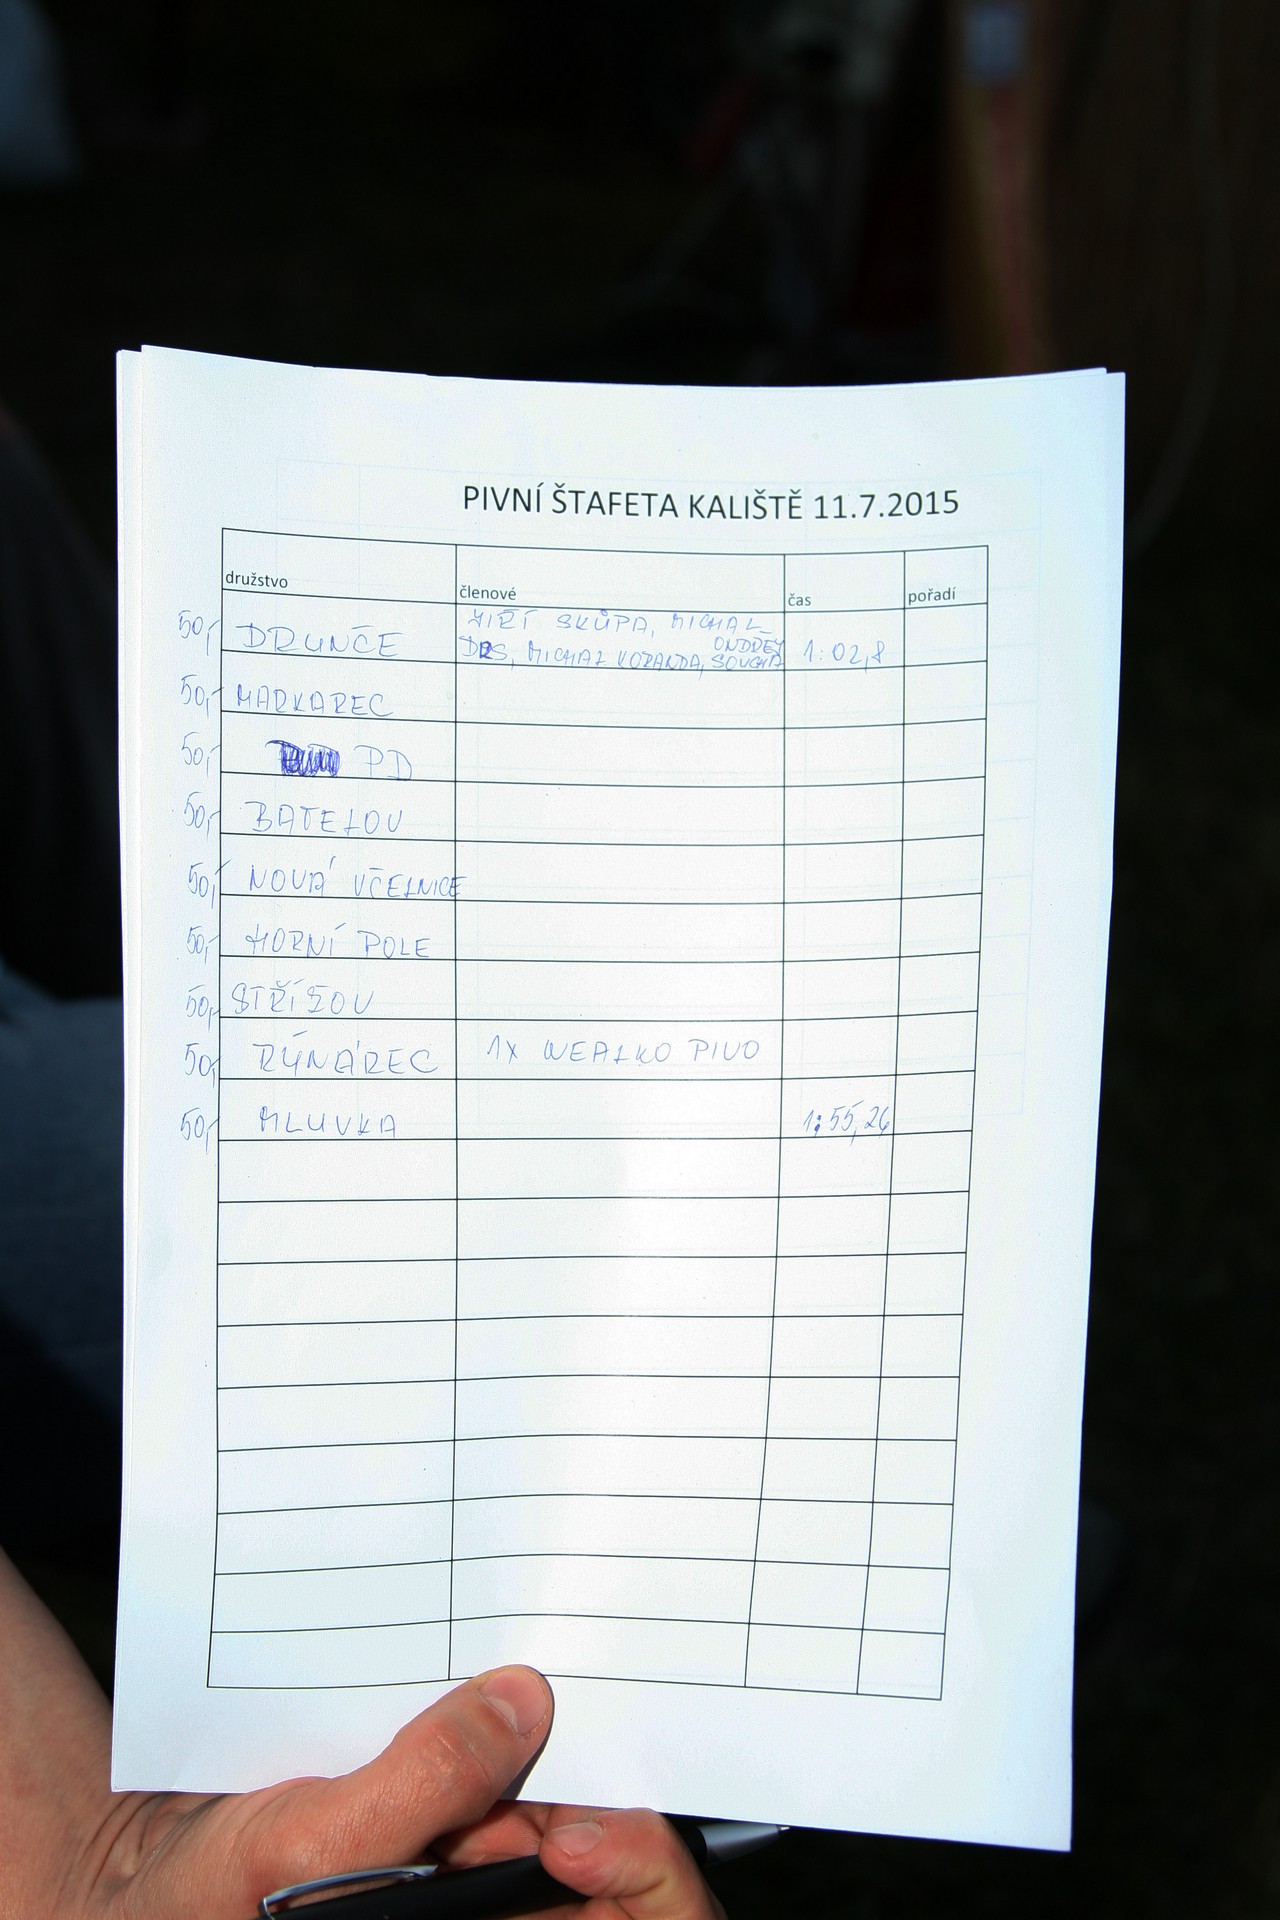 PIVNÍ ŠTAFETA KALIŠTĚ 11.7.2015
družstvo členové čas pořadí
50,- DRUNČE JIŘÍ SKŮPA, MICHAL DRS, MICHAL KOZANDA, ONDŘEJ SOUCHA 1:02,8
50,- MARKAREC
50,- PD
50,- BATELOV
50,- NOVÁ VČELNICE
50,- HORNÍ POLE
50,- STŘÍŽOV
50,- RÝNÁREC 1X WEALKO PIVO
50,- MLUVKA 1:55,26